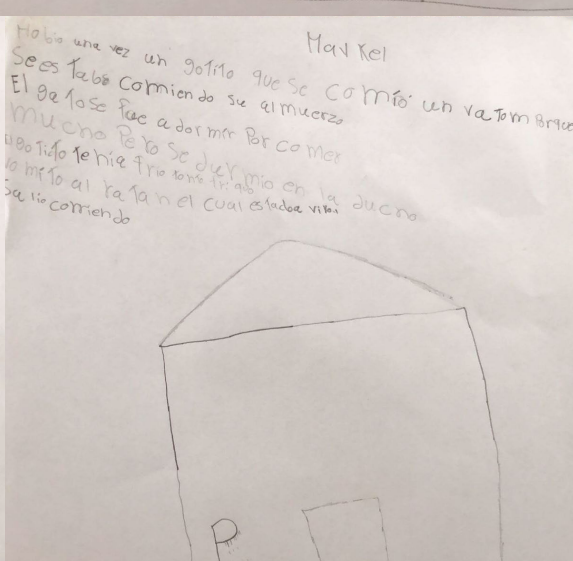 Markel
Habia una vez un gotito que se comio un raton
Se estaba comiendo su almuerzo
El gatose fue a dormir Por comer
mucho Pero se durmio en la ducha
gotito tenia frio
vomito al raton el cual estadoa vivo
Salio corriendo
P